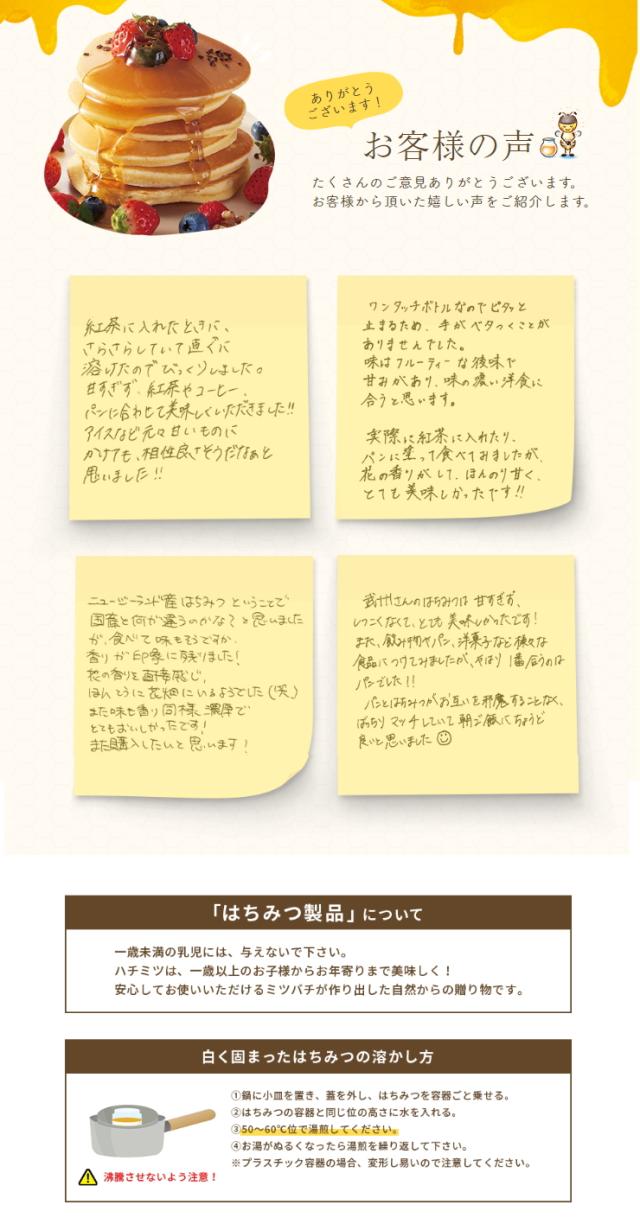 ありがとう
ございます！
お客様の声
たくさんのご意見ありがとうございます。
お客様から頂いた嬉しい声をご紹介します。
紅茶に入れたときに、
さらさらしていて直ぐに
溶けたのでびっくりしました。
甘すぎず、紅茶やコーヒー、
パンに合わせて美味しくいただきました!!
アイスなど元々甘いものに
かけても、相性良さそうだなぁと
思いました!!
ワンタッチボトルなのでピタッと
止まるため、手がベタつくことが
ありませんでした。
味はフルーティーな後味で
甘みがあり、味の濃い洋食に
合うと思います。
実際に紅茶に入れたり、
パンに塗って食べてみましたが、
花の香りがして、ほんのり甘く、
とても美味しかったです!!
ニュージーランド産はちみつということで
国産と何が違うのかな？と思いました
が、食べて味もそうですが、
香りが印象に残りました！
花の香りを直接感じ、
ほんとうに花畑にいるようでした(笑)
また味も香り同様、濃厚で
とてもおいしかったです！
また購入したいと思います！
武州さんのはちみつは甘すぎず、
しつこくなくて、とても美味しかったです！
また、飲み物やパン、洋菓子など様々な
食品につけてみましたが、やはり1番合うのは
パンでした!!
パンとはちみつがお互いを邪魔することなく、
ばっちりマッチしていて朝ご飯にちょうど
良いと思いました
「はちみつ製品」について
一歳未満の乳児には、与えないで下さい。
ハチミツは、一歳以上のお子様からお年寄りまで美味しく！
安心してお使いいただけるミツバチが作り出した自然からの贈り物です。
白く固まったはちみつの溶かし方
①鍋に小皿を置き、蓋を外し、はちみつを容器ごと乗せる。
②はちみつの容器と同じ位の高さに水を入れる。
③50〜60℃位で湯煎してください。
④お湯がぬるくなったら湯煎を繰り返して下さい。
※プラスチック容器の場合、変形し易いので注意してください。
沸騰させないよう注意！